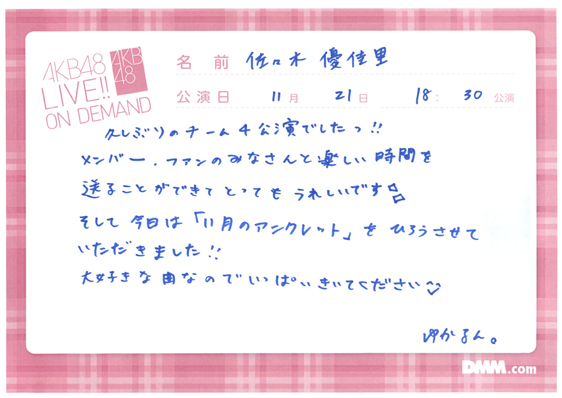 AKB48
LIVE!!
ON DEMAND
AKB
48
名前 佐々木 優佳里
公演日 11月 21日 18:30 公演
久しぶりのチーム4公演でしたっ!!
メンバー、ファンのみなさんと楽しい時間を
送ることができてとってもうれしいです
そして今日は「11月のアンクレット」をひろうさせて
いただきました!!
大好きな曲なのでいっぱいきいてください
ゆかるん。
DMM.com